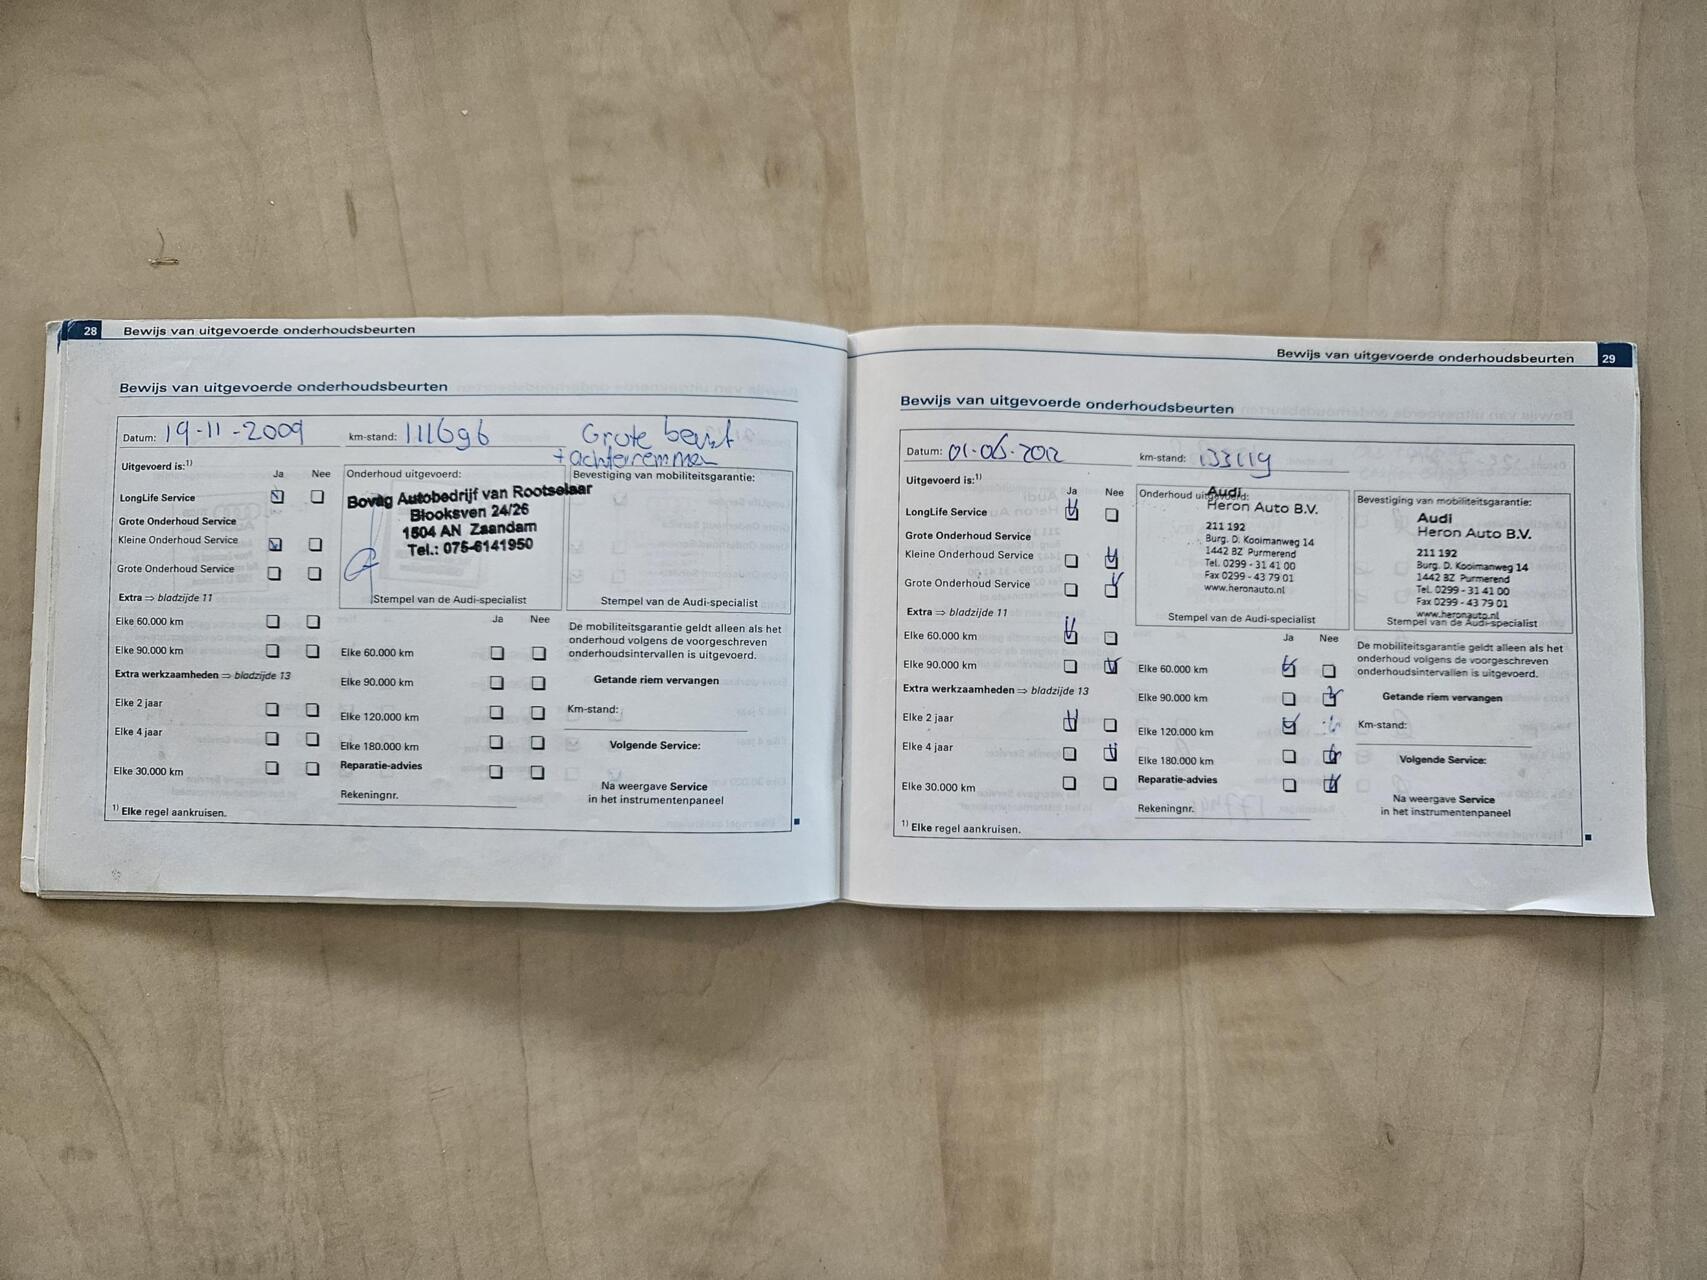 28 Bewijs van uitgevoerde onderhoudsbeurten
Bewijs van uitgevoerde onderhoudsbeurten
Datum: 19-11-2009 km-stand: 111696 Grote beurt
+ achterremmen
Uitgevoerd is:1)
Ja Nee
LongLife Service
Grote Onderhoud Service
Kleine Onderhoud Service
Grote Onderhoud Service
Extra ⇒ bladzijde 11
Elke 60.000 km
Elke 90.000 km
Extra werkzaamheden ⇒ bladzijde 13
Elke 2 jaar
Elke 4 jaar
Elke 30.000 km
1) Elke regel aankruisen.
Onderhoud uitgevoerd:
Bovag Autobedrijf van Rootselaar
Blooksven 24/26
1504 AN Zaandam
Tel.: 075-6141950
Stempel van de Audi-specialist
Ja Nee
Elke 60.000 km
Elke 90.000 km
Elke 120.000 km
Elke 180.000 km
Reparatie-advies
Rekeningnr.
Bevestiging van mobiliteitsgarantie:
Stempel van de Audi-specialist
De mobiliteitsgarantie geldt alleen als het
onderhoud volgens de voorgeschreven
onderhoudsintervallen is uitgevoerd.
Getande riem vervangen
Km-stand:
Volgende Service:
Na weergave Service
in het instrumentenpaneel
Bewijs van uitgevoerde onderhoudsbeurten 29
Bewijs van uitgevoerde onderhoudsbeurten
Datum: 01-06-2012 km-stand: 133119
Uitgevoerd is:1)
Ja Nee
LongLife Service
Grote Onderhoud Service
Kleine Onderhoud Service
Grote Onderhoud Service
Extra ⇒ bladzijde 11
Elke 60.000 km
Elke 90.000 km
Extra werkzaamheden ⇒ bladzijde 13
Elke 2 jaar
Elke 4 jaar
Elke 30.000 km
1) Elke regel aankruisen.
Onderhoud uitgevoerd:
Audi
Heron Auto B.V.
211 192
Burg. D. Kooimanweg 14
1442 BZ Purmerend
Tel. 0299 - 31 41 00
Fax 0299 - 43 79 01
www.heronauto.nl
Stempel van de Audi-specialist
Ja Nee
Elke 60.000 km
Elke 90.000 km
Elke 120.000 km
Elke 180.000 km
Reparatie-advies
Rekeningnr.
Bevestiging van mobiliteitsgarantie:
Audi
Heron Auto B.V.
211 192
Burg. D. Kooimanweg 14
1442 BZ Purmerend
Tel. 0299 - 31 41 00
Fax 0299 - 43 79 01
www.heronauto.nl
Stempel van de Audi-specialist
De mobiliteitsgarantie geldt alleen als het
onderhoud volgens de voorgeschreven
onderhoudsintervallen is uitgevoerd.
Getande riem vervangen
Km-stand:
Volgende Service:
Na weergave Service
in het instrumentenpaneel